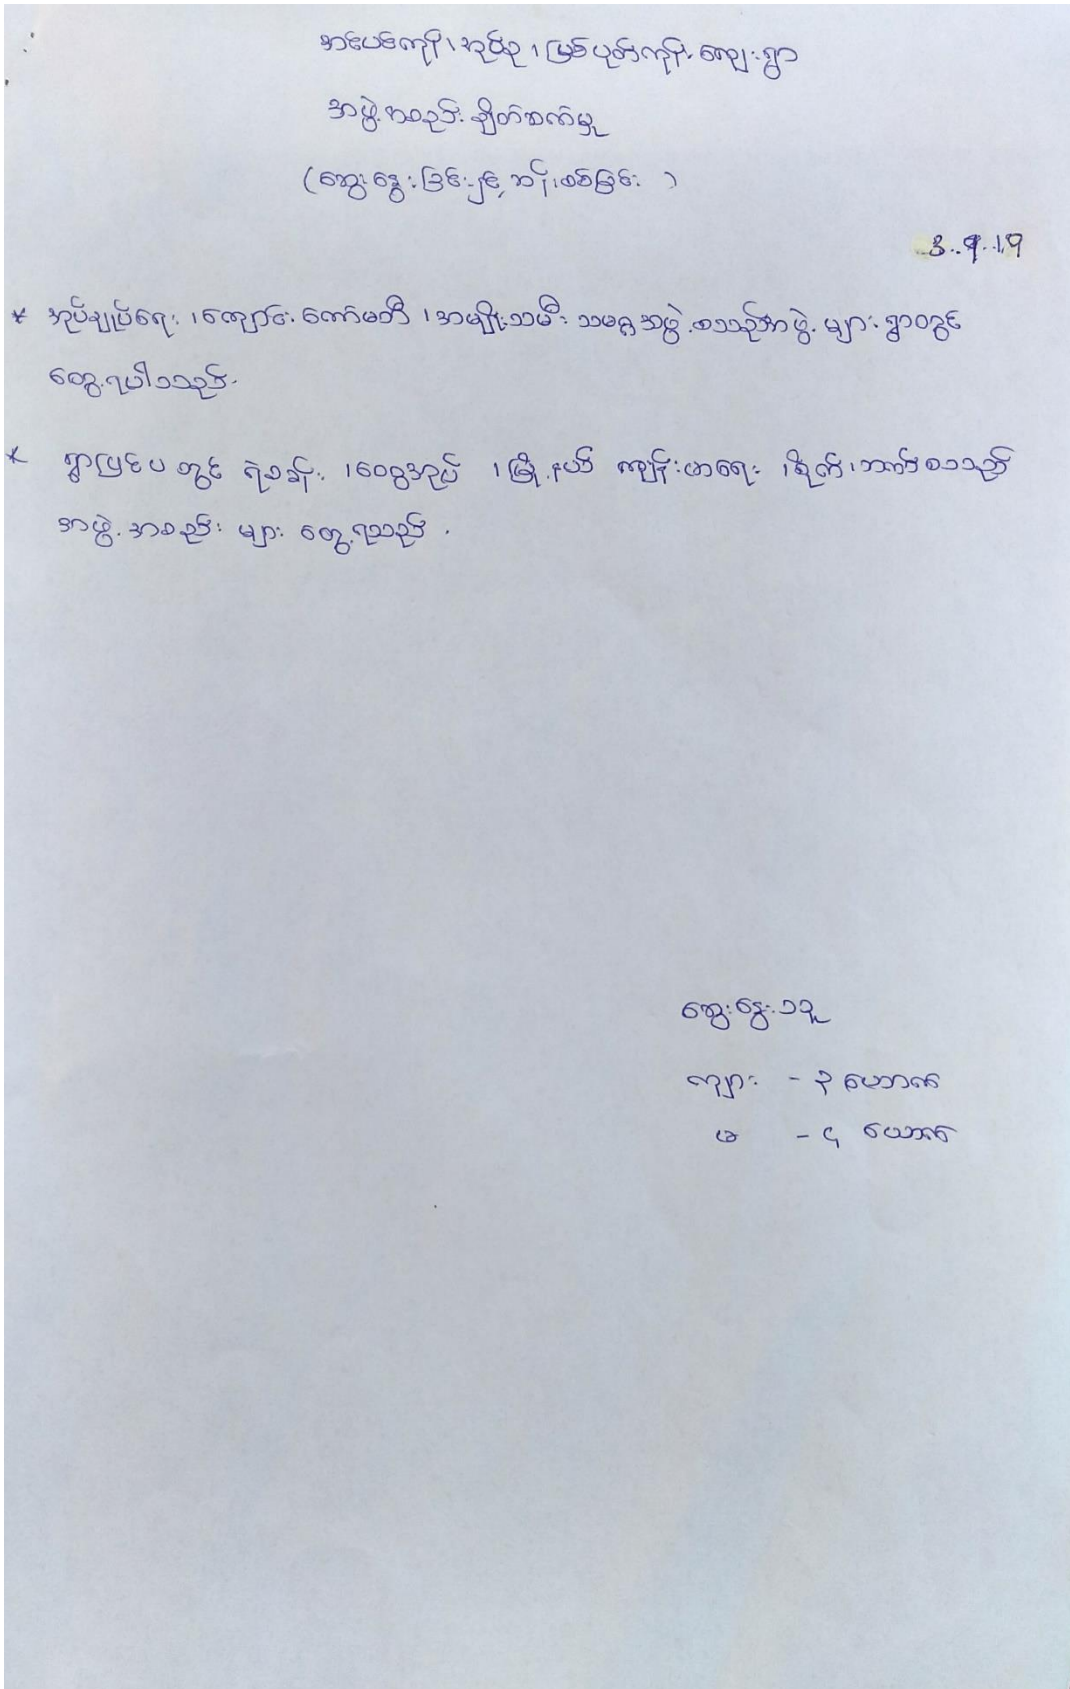 အင်ပင်ကုန်း၊ အုပ်စု၊ မြစ်ပုတ်ကုန်း ကျေးရွာ
အဖွဲ့အစည်း ချိတ်ဆက်မှု
(ဆွေးနွေးခြင်းနှင့် ဆန်းစစ်ခြင်း )
3.9.19
* အုပ်ချုပ်ရေး၊ ကျောင်းကော်မတီ၊ အမျိုးသမီး သမဂ္ဂအဖွဲ့ စသည့်အဖွဲ့ များ ရွာတွင်
တွေ့ရပါသည်။
* ရွာပြင်ပ တွင် ရဲစခန်း၊ တောအုပ် ၊ မြို့နယ် ကျန်းမာရေး ၊ စိုက်၊ ဘဏ် စသည့်
အဖွဲ့အစည်း များ တွေ့ရသည်။
ဆွေးနွေးသူ
ကျား - ၃ ယောက်
မ - ၄ ယောက်